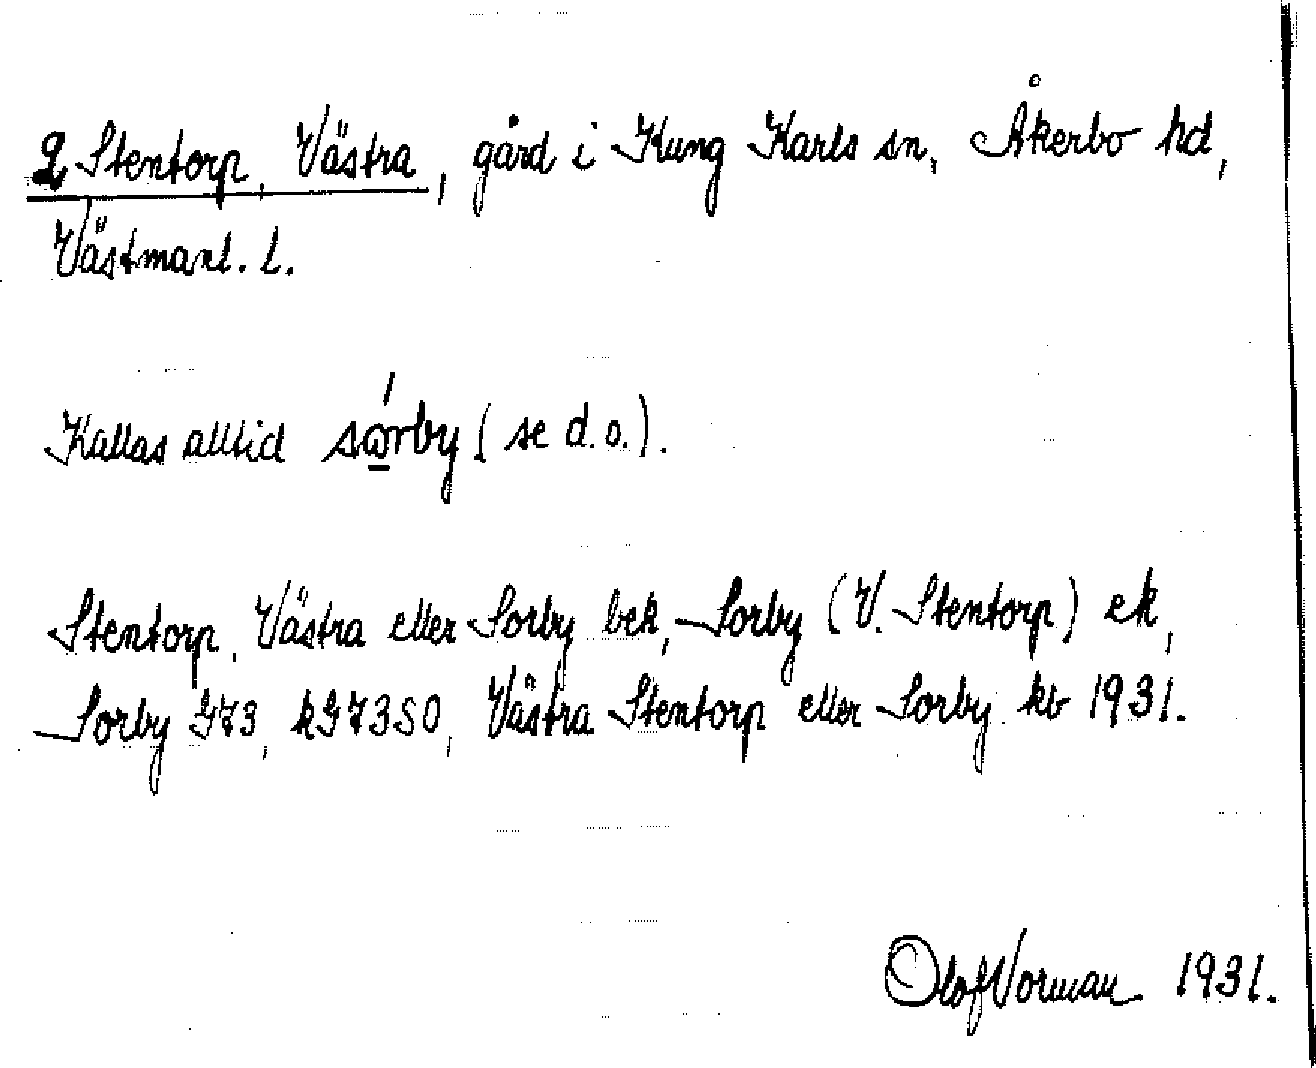 2 Stentorp, Västra, gård i Kung Karls sn, Åkerbo hd,
Västmanl. l.
Kallas alltid sǿrby (se d.o.).
Stentorp, Västra eller Sorby bek, Sorby (V. Stentorp) ek,
Sorby G73, kG73SO, Västra Stentorp eller Sorby kb 1931.
Olof Norman 1931.